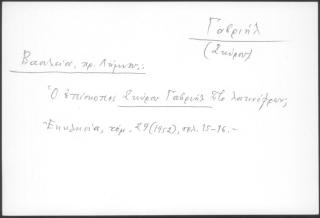 Γαβριήλ
(Σκύρου)
Βασιλείου, πρ. Λήμνου:
Ὁ ἐπίσκοπος Σκύρου Γαβριὴλ λατινόφρων;
Ἐκκλησία, τόμ. 29 (1952), σελ. 15-16.-